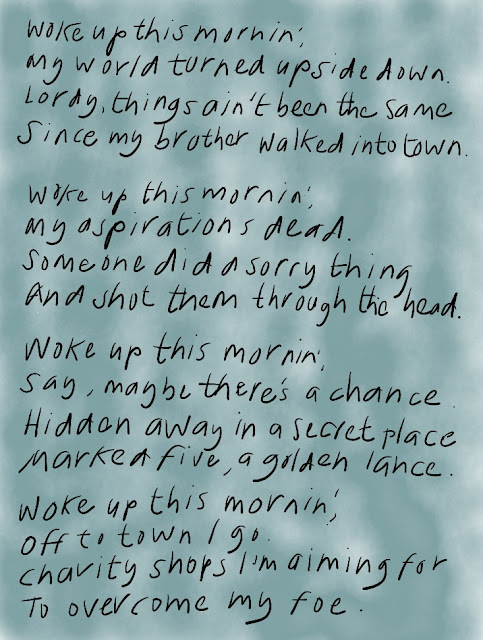 Woke up this mornin',
my world turned upside down.
Lordy, things ain't been the same
Since my brother walked into town.
Woke up this mornin',
my aspirations dead.
Someone did a sorry thing
And shot them through the head.
Woke up this mornin',
Say, maybe there's a chance.
Hidden away in a secret place
Marked five, a golden lance.
Woke up this mornin',
Off to town I go.
Charity shops I'm aiming for
To overcome my foe.